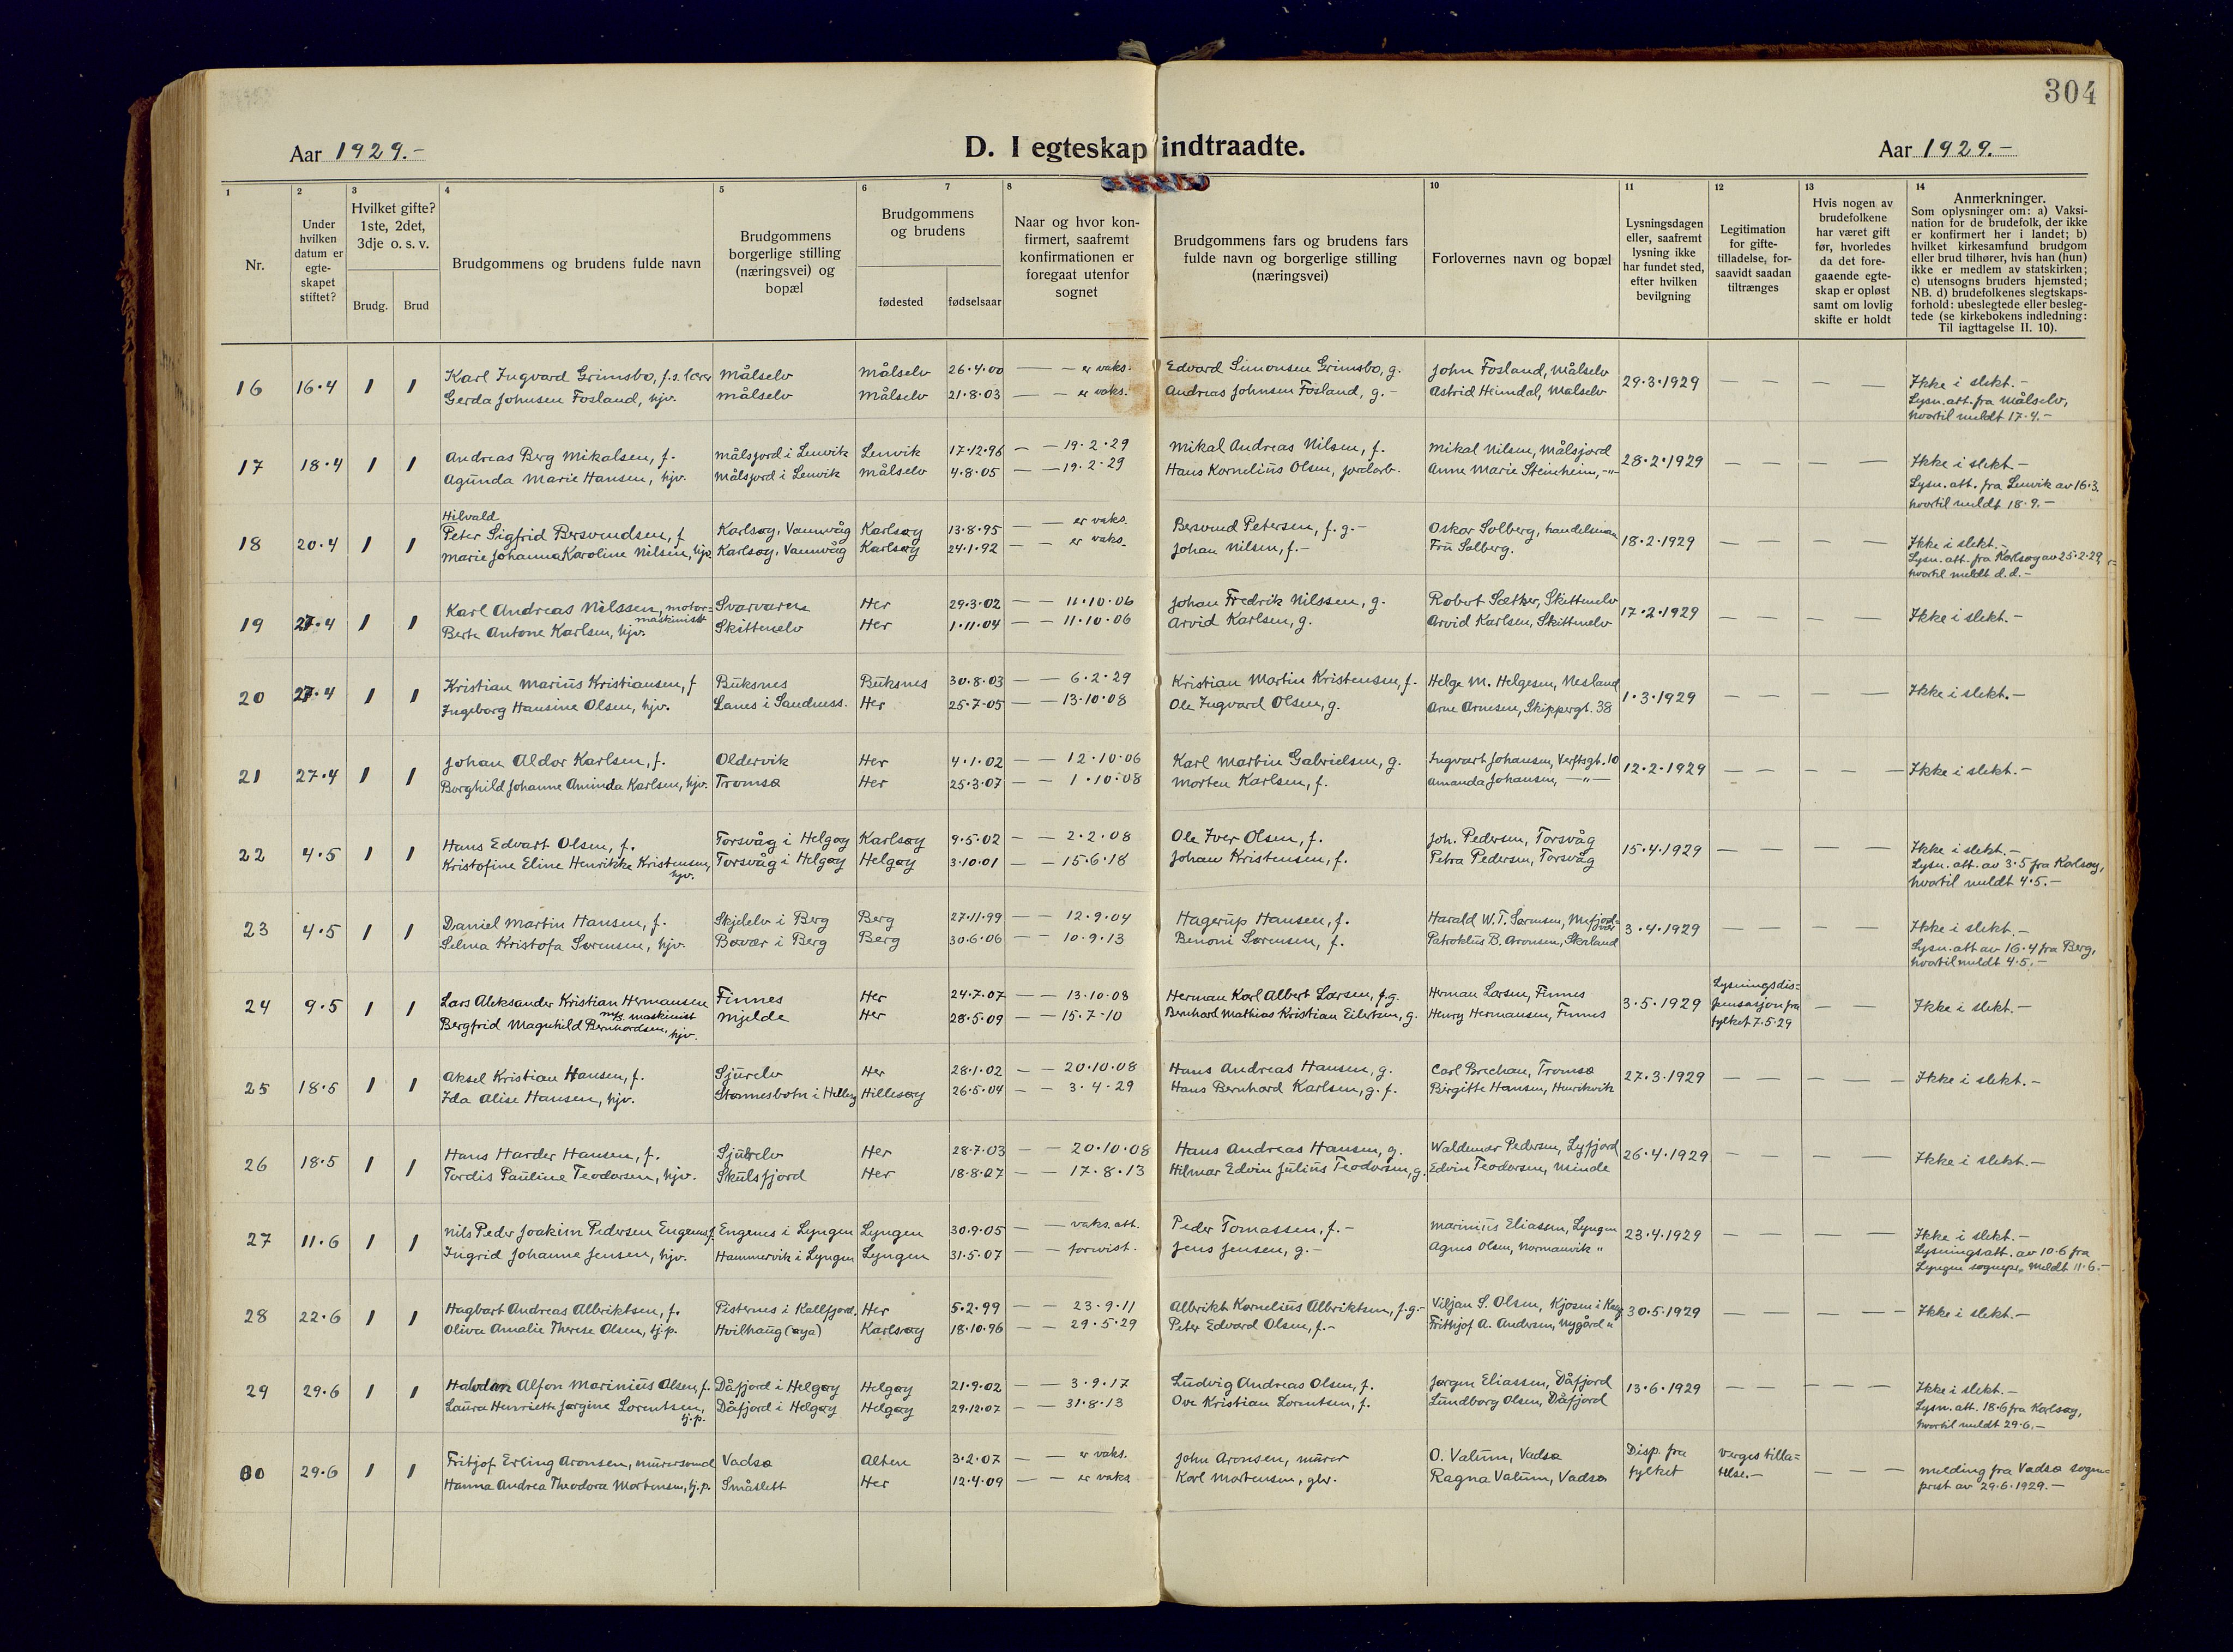 304
Aar 1929.-
D. I egteskap indtraadte.
Aar 1929.-
1 2 3 4 5 6 7 8 10 11 12 13 14
Nr.
Under hvilken datum er egte-skapet stiftet?
Hvilket gifte? 1ste, 2det, 3dje o. s. v.
Brudg. Brud
Brudgommens og brudens fulde navn
Brudgommens borgerlige stilling (næringsvei) og bopæl
Brudgommens og brudens
fødested fødselsaar
Naar og hvor kon-firmert, saafremt konfirmationen er foregaat utenfor sognet
Brudgommens fars og brudens fars fulde navn og borgerlige stilling (næringsvei)
Forlovernes navn og bopæl
Lysningsdagen eller, saafremt lysning ikke har fundet sted, efter hvilken bevilgning
Legitimation for gifte-tilladelse, for-saavidt saadan tiltrænges
Hvis nogen av brudefolkene har været gift før, hvorledes da det fore-gaaende egte-skap er opløst samt om lovlig skifte er holdt
Anmerkninger.
Som oplysninger om: a) Vaksi-nation for de brudefolk, der ikke er konfirmert her i landet; b) hvilket kirkesamfund brudgom eller brud tilhører, hvis han (hun) ikke er medlem av statskirken; c) utensogns bruders hjemsted; NB. d) brudefolkenes slegtskaps-forhold: ubeslegtede eller besleg-tede (se kirkebokens indledning: Til iagttagelse II. 10).
16 16·4 1 1 Karl Ingvard Grimsbo, f.s. lærer Målselv Målselv 26·4·00 — — er vaks. Edvard Simonsen Grimsbo, g. John Fosland, Målselv 29·3·1929 — — — — Ikke i slekt.-
Gerda Johnsen Fosland, hjv. Målselv Målselv 21·8·03 — — er vaks. Andreas Johnsen Fosland, g.- Astrid Heimdal, Målselv Lysn. att. fra Målselv,
hvortil meldt 17·4.-
17 18·4 1 1 Andreas Berg Mikalsen, f. Målsjord i Lenvik Lenvik 17·12·96 — — 19·2·29 Mikal Andreas Nilsen, f. Mikal Nilsen, Målsjord 28·2·1929 — — — — Ikke i slekt.-
Agunda Marie Hansen, hjv. Målsjord i Lenvik Målselv 4·8·05 — — 19·2·29 Hans Kornelius Olsen, jordarb. Anne Marie Steinheim, -"- Lysn. att. fra Lenvik av 16·3.
hvortil meldt 18·9.-
Hilvald
18 20·4 1 1 Peter Sigfrid Bersvendsen, f Karlsøy, Vannvåg Karlsøy 13·8·95 — — er vaks. Bersvend Petersen, f.g.- Oskar Solberg, handelsman 18·2·1929 — — — — Ikke i slekt.-
Marie Johanna Karoline Nilsen, hjv. Karlsøy, Vannvåg Karlsøy 24·1·92 — — er vaks. Johan Nilsen, f.- Fru Solberg. Lysn. att. fra Karlsøy av 25·2·29,
hvortil meldt d.d.-
19 27·4 1 1 Karl Andreas Nilssen, motor-maskinist Svarvaren Her 29·3·02 — — 11·10·06 Johan Fredrik Nilssen, g. Robert Sæther, Skittenelv 17·2·1929 — — — — Ikke i slekt.-
Berte Antone Karlsen, hjv. Skittenelv Her 1·11·04 — — 11·10·06 Arvid Karlsen, g. Arvid Karlsen, Skittenelv
20 27·4 1 1 Kristian Marius Kristiansen, f Buksnes Buksnes 30·8·03 — — 6·2·29 Kristian Martin Kristensen, f. Helge M. Helgesen, Nesland 1·3·1929 — — — — Ikke i slekt.-
Ingeborg Hansine Olsen, hjv. Lanes i Sandness. Her 25·7·05 — — 13·10·08 Ole Ingvard Olsen, g. Arne Arnesen, Skippergt. 38
21 27·4 1 1 Johan Aldor Karlsen, f. Oldervik Her 4·1·02 — — 12·10·06 Karl Martin Gabrielsen, g. Ingvart Johansen, Verftsgt. 10 12·2·1929 — — — — Ikke i slekt.-
Borghild Johanne Aminda Karlsen, hjv. Tromsø Her 25·3·07 — — 1·10·08 Morten Karlsen, f. Amanda Johansen, —"—
22 4·5 1 1 Hans Edvart Olsen, f. Torsvåg i Helgøy Karlsøy 9·5·02 — — 2·2·08 Ole Iver Olsen, f. Joh. Pedersen, Torsvåg 15·4·1929 — — — — Ikke i slekt.-
Kristofine Eline Henrikke Kristensen, hjv. Torsvåg i Helgøy Helgøy 3·10·01 — — 15·6·18 Johan Kristensen, f. Petra Pedersen, Torsvåg Lysn. att. av 3·5 fra Karlsøy,
hvortil meldt 4·5.-
23 4·5 1 1 Daniel Martin Hansen, f. Skjelelv i Berg Berg 27·11·99 — — 12·9·04 Hagerup Hansen, f. Harald W.T. Sørensen, Mefjord-vær 3·4·1929 — — — — Ikke i slekt.-
Selma Kristofa Sørensen, hjv. Bøvær i Berg Berg 30·6·06 — — 10·9·13 Benoni Sørensen, f. Patroklus B. Aronsen, Skaland Lysn. att av 16·4 fra Berg,
hvortil meldt 4·5.-
24 9·5 1 1 Lars Aleksander Kristian Hermansen m/s. maskinist Finnes Her 24·7·07 — — 13·10·08 Herman Karl Albert Larsen, f.g. Herman Larsen, Finnes 3·5·1929 Lysningsdis-pensasjon fra fylket 7·5·29 — — Ikke i slekt.-
Bergfrid Magnhild Bernhardsen, hjv. Mjelde Her 28·5·09 — — 15·7·10 Bernhard Mathias Kristian Eilertsen, g. Henry Hermansen, Finnes
25 18·5 1 1 Aksel Kristian Hansen, f. Sjurelv Her 28·1·02 — — 20·10·08 Hans Andreas Hansen, g. Carl Brechan, Tromsø 27·3·1929 — — — — Ikke i slekt.-
Ida Alise Hansen, hjv. Stønnesbotn i Hillesøy Hillesøy 26·5·04 — — 3·4·29 Hans Bernhard Karlsen, g. f. Birgitte Hansen, Henrikvik
26 18·5 1 1 Hans Harder Hansen, f. Sjurelv Her 28·7·03 — — 20·10·08 Hans Andreas Hansen, g. Waldemar Pedersen, Lyfjord 26·4·1929 — — — — Ikke i slekt.-
Tordis Pauline Teodorsen, hjv. Skulsfjord Her 18·8·07 — — 17·8·13 Hilmar Edvin Julius Teodorsen, g. Edvin Teodorsen, Minde
27 11·6 1 1 Nils Peder Joakim Pedersen Engenes, f. Engenes i Lyngen Lyngen 30·9·05 — — vaks. att. Peder Tomassen, f.- Marinius Eliassen, Lyngen 23·4·1929 — — — — Ikke i slekt.-
Ingrid Johanne Jensen, hjv. Hammervik i Lyngen Lyngen 31·5·07 — — forevist. Jens Jensen, g.- Agnes Olsen, Normannvik " Lysningsatt. av 10·6 fra
Lyngen sognepr. Meldt 11·6.-
28 22·6 1 1 Hagbart Andreas Albriktsen, f. Pisternes i Kallfjord. Her 5·2·99 — — 23·9·11 Albrikt Kornelius Albriktsen, f.g.- Viljan S. Olsen, Kjosen i 30·5·1929 — — — — Ikke i slekt.-
Olive Amalie Therese Olsen, tj.p. Hvilhaug (øya) Karlsøy 18·10·96 — — 29·5·29 Peter Edvard Olsen, f.- Frithjof A. Andersen, Nygård "
29 29·6 1 1 Halvdan Alfon Marinius Olsen, f. Dåfjord i Helgøy Helgøy 21·9·02 — — 3·9·17 Ludvig Andreas Olsen, f. Jørgen Eliassen, Dåfjord 13·6·1929 — — — — Ikke i slekt.-
Laura Henriette Jørgine Lorentsen, tj.p. Dåfjord i Helgøy Helgøy 29·12·07 — — 31·8·13 Ove Kristian Lorentsen, f. Lundborg Olsen, Dåfjord Lysn. att. 18·6 fra Karlsøy,
hvortil meldt 29·6.-
30 29·6 1 1 Fritjof Erling Aronsen, murersvend Vadsø Alten 3·2·07 — — er vaks. John Aronsen, murer O. Valum, Vadsø Disp. fra fylket Verges tilla-telse.- — — — Melding fra Vadsø sogne-
Hanna Andrea Theodora Mortensen, tj.p. Småslett Her 12·4·09 — — er vaks Karl Mortensen, gbr. Ragna Valum, Vadsø prest av 29·6·1929.-